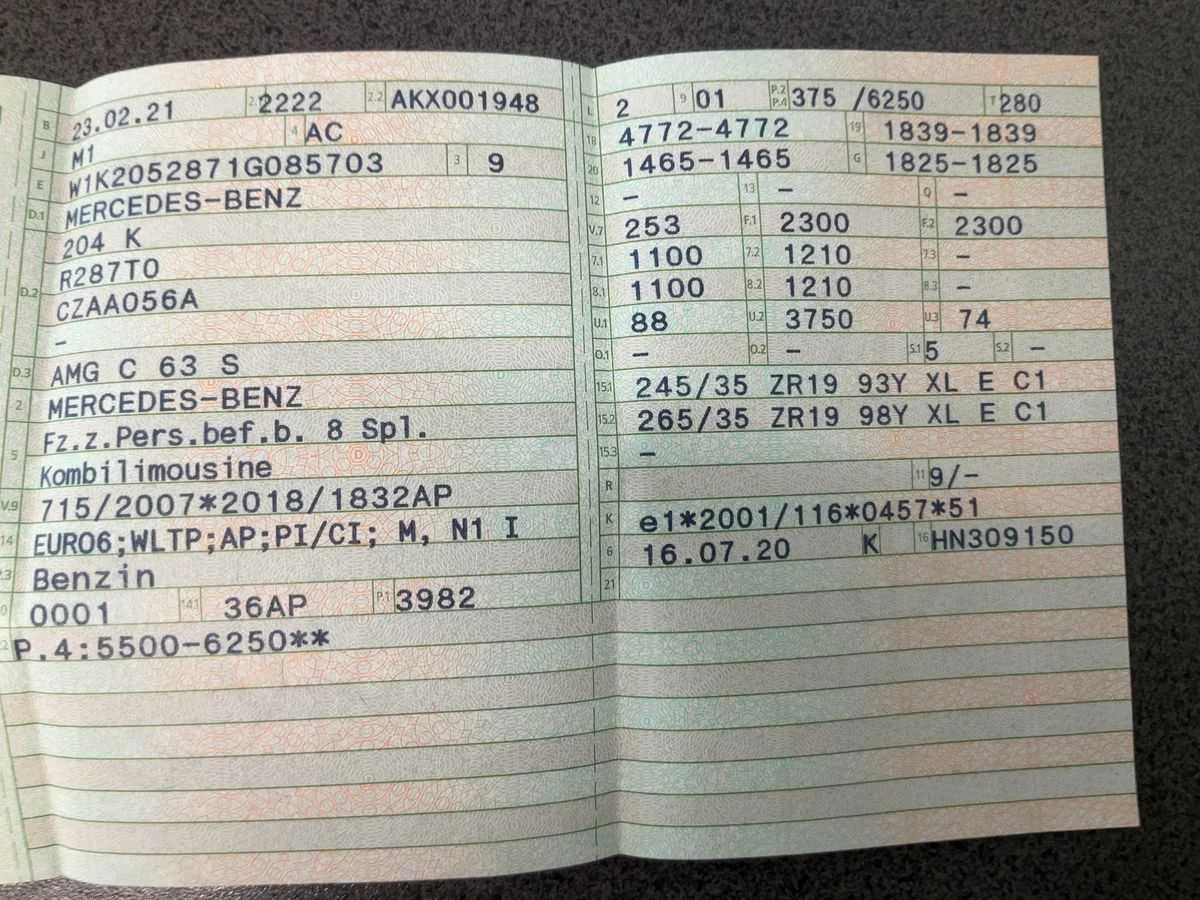 B 23.02.21 2.1 2222 2.2 AKX001948
J M1 4 AC
E W1K2052871G085703 3 9
D.1 MERCEDES-BENZ
204 K
D.2 R287T0
CZAA056A
-
D.3 AMG C 63 S
2 MERCEDES-BENZ
5 Fz.z.Pers.bef.b. 8 Spl.
Kombilimousine
V.9 715/2007*2018/1832AP
14 EURO6;WLTP;AP;PI/CI; M, N1 I
P.3 Benzin
10 0001 14.1 36AP P.1 3982
22 P.4:5500-6250**
L 2 9 01 P.2 P.4 375 /6250 T 280
18 4772-4772 19 1839-1839
20 1465-1465 G 1825-1825
12 - 13 - Q -
V.7 253 F.1 2300 F.2 2300
7.1 1100 7.2 1210 7.3 -
8.1 1100 8.2 1210 8.3 -
U.1 88 U.2 3750 U.3 74
O.1 - O.2 - S.1 5 S.2 -
15.1 245/35 ZR19 93Y XL E C1
15.2 265/35 ZR19 98Y XL E C1
15.3 -
R 11 9/-
K e1*2001/116*0457*51
6 16.07.20 K 16 HN309150
21